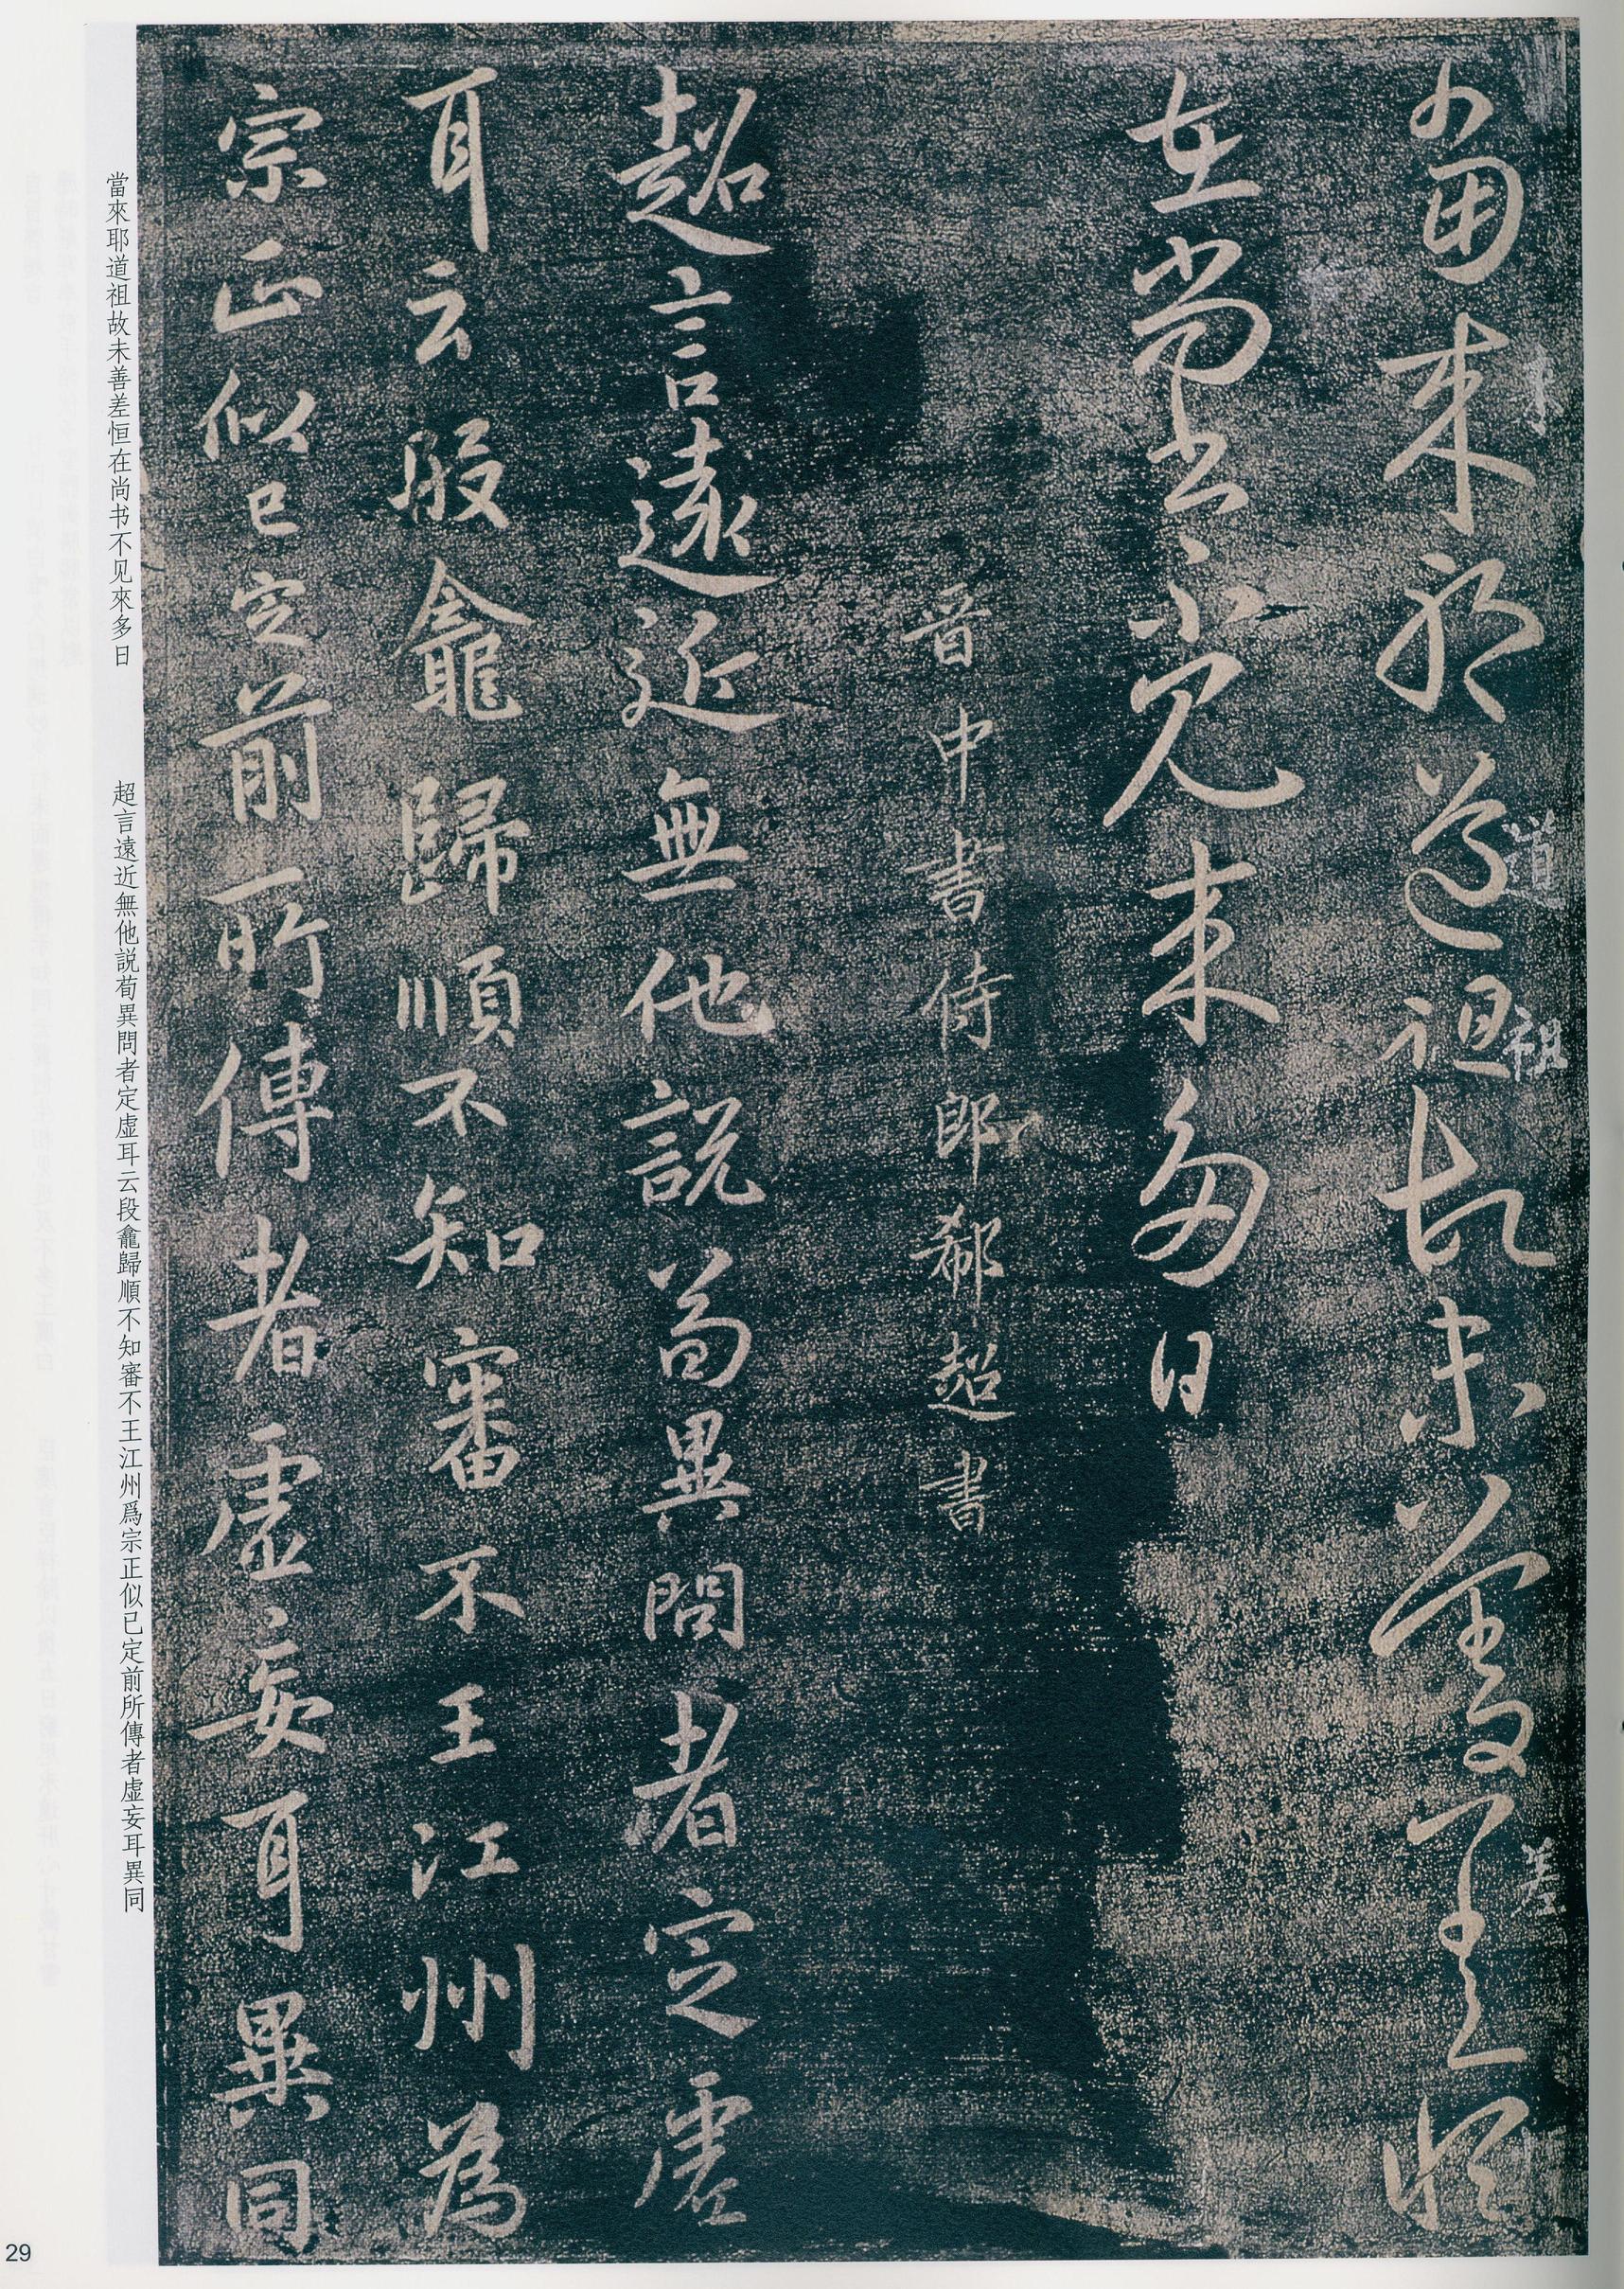 當來耶道祖故未善差恒
來
道
祖
差
在尚书不見來多日
晉中書侍郎郗超書
超言遠近無他説茍異問者定虛
耳云段龕歸順不知審不王江州為
宗正似已定前所傳者虛妄耳異同
當來耶道祖故未善差恒在尚书不见來多日
超言遠近無他説荀異問者定虛耳云段龕歸順不知審不王江州爲宗正似已定前所傳者虛妄耳異同
29